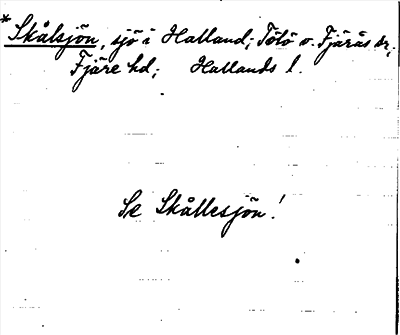 * Skålsjön, sjö i Halland; Tölö o. Fjärås sr,
Fjäre hd; Hallands l.
Se Skållesjön!